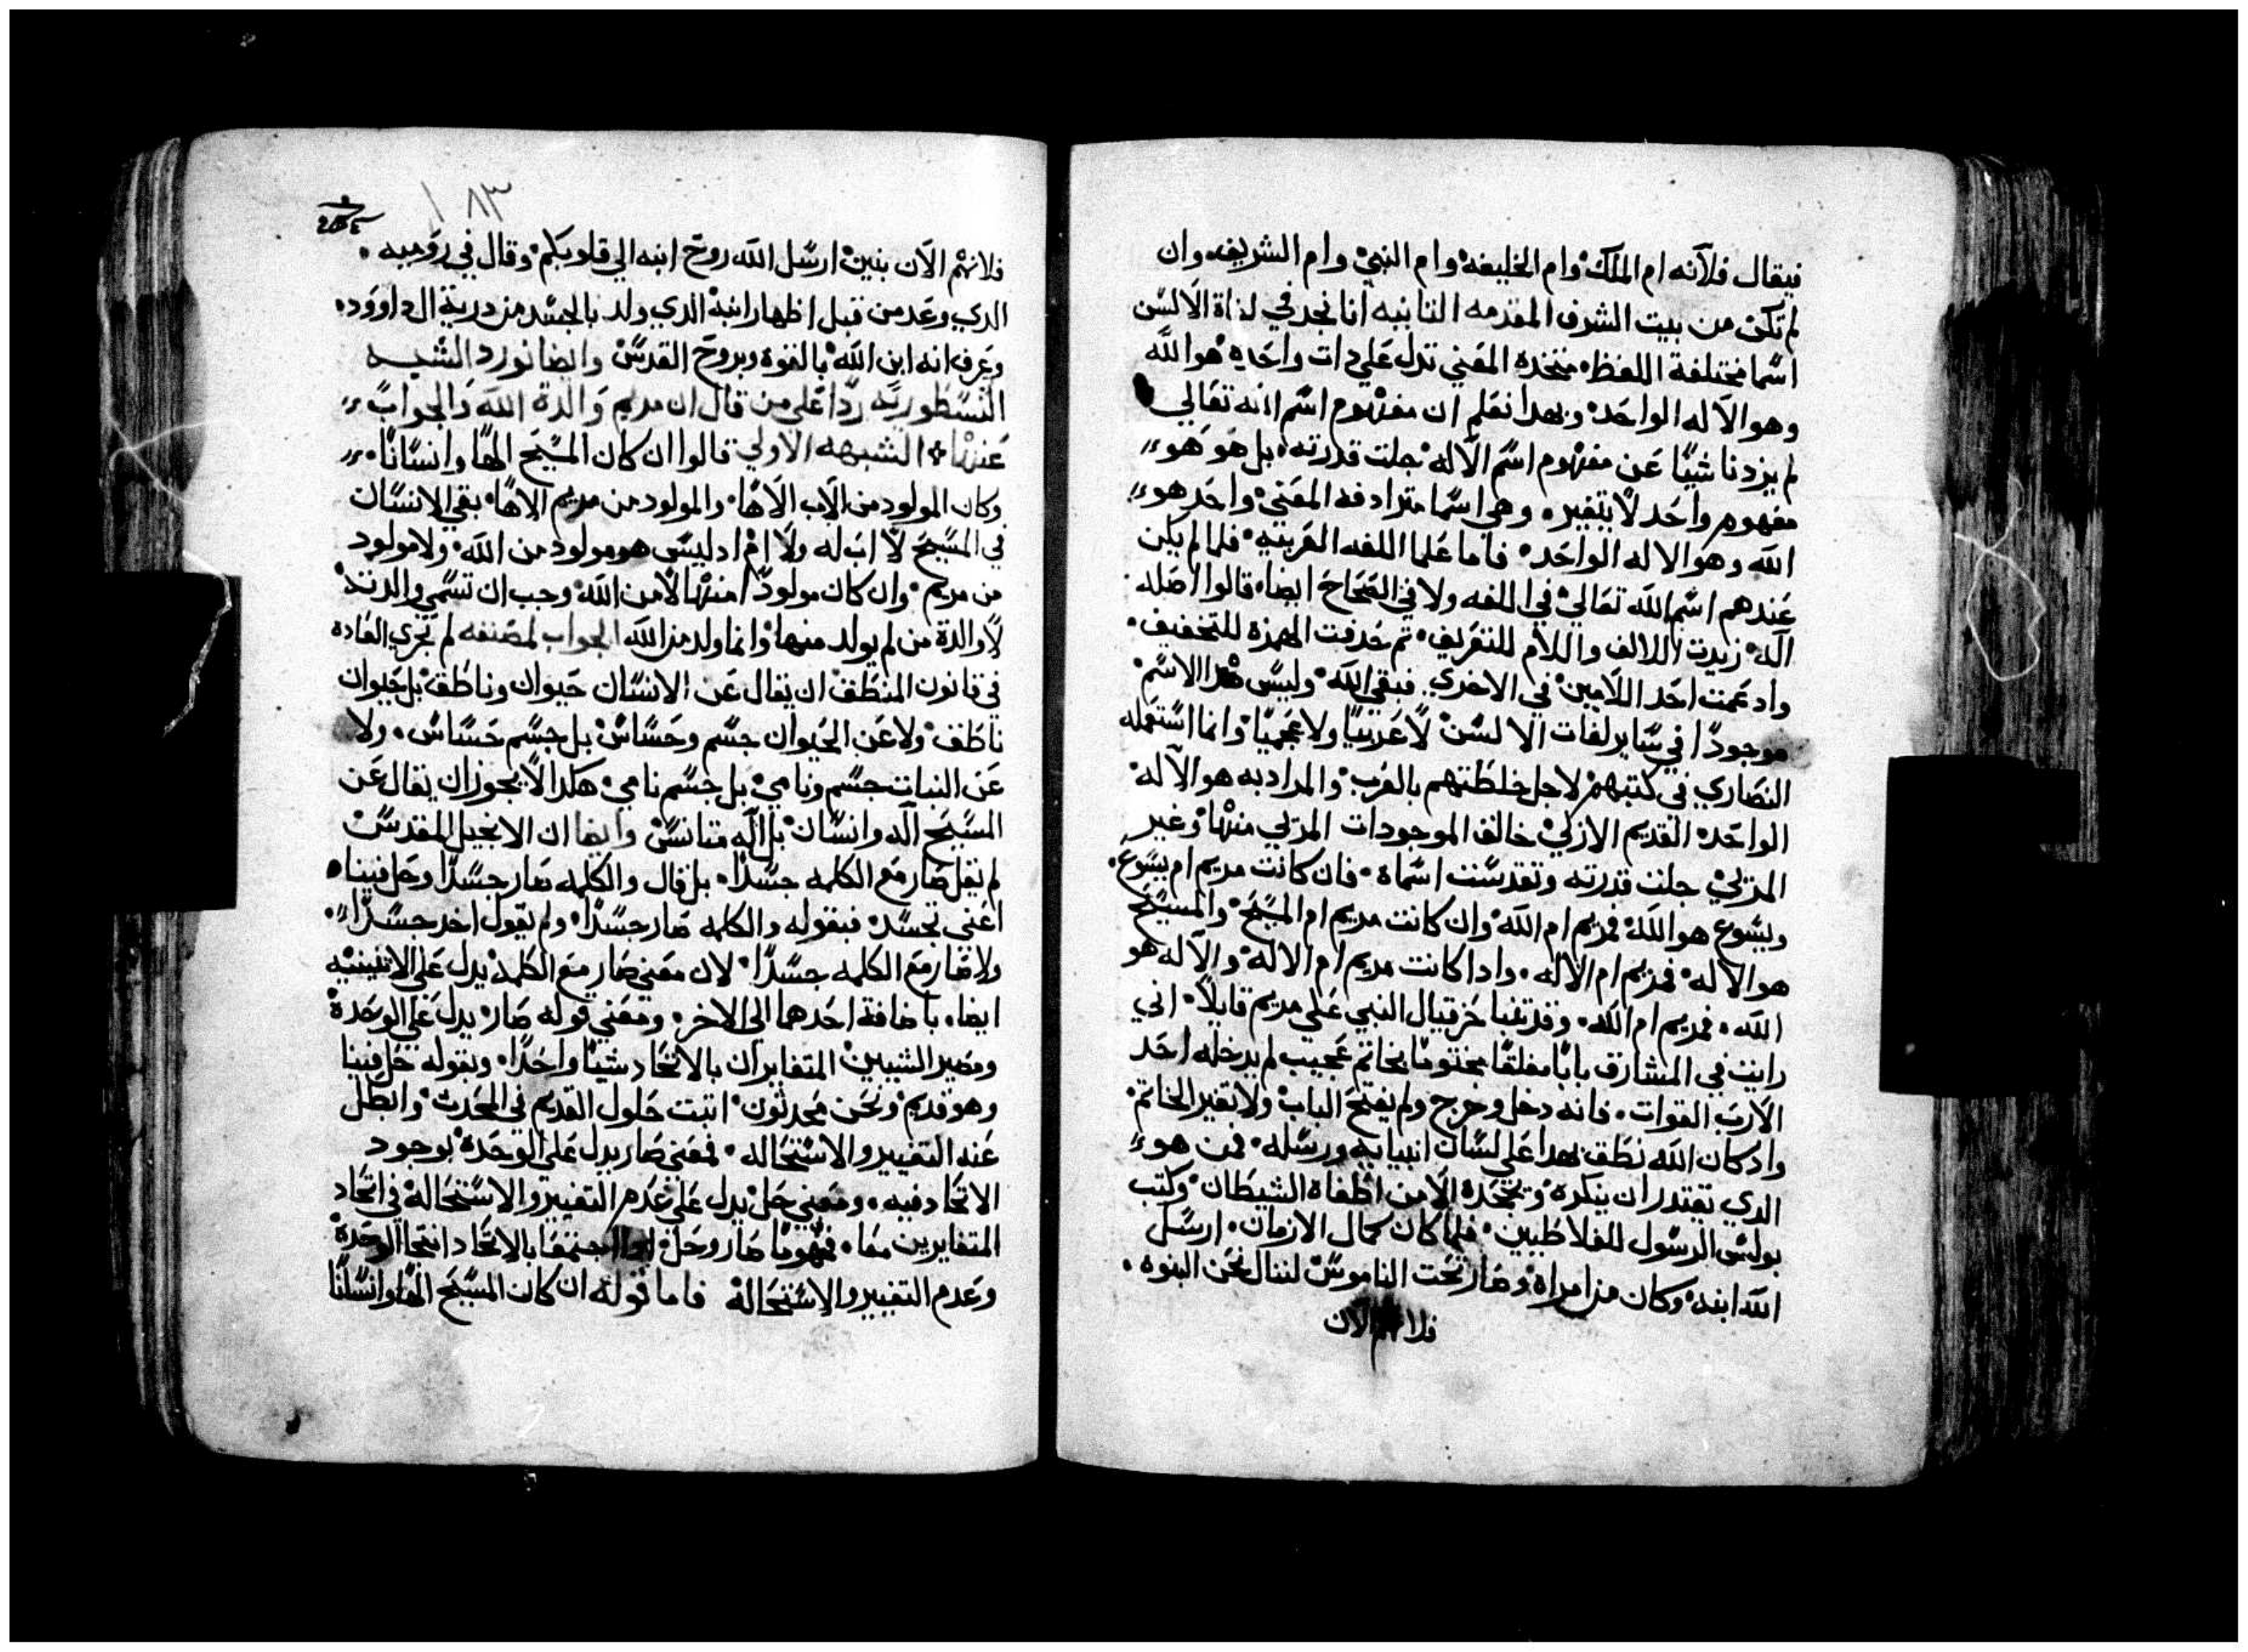 فيقال فلآنه ام الملك وام الخليفه وام النبي وام الشريف وان
لم تكن من بيت الشرف المقدمه الثانيه انا نجد في لذاة الالسن
اسما مختلفة اللفظ متخده المعني تدل علي دات واحده هو الله
وهو الاله الواحد وبهدا نعلم ان مفهوم اسم الله تعالي
لم يزدنا شيا عن مفهوم اسم الاله جلت قدرته بل هو هو
مفهوم واحد لا يتغير وهي اسما مترادفه المعني واحد هو
الله وهو الاله الواحد فاما علما اللغه العربيه فلما لم يكن
عندهم اسم الله تعالي في اللغه ولا في الصحاح ايضا قالوا اصله
آله زيدت اللالف واللام للتعريف تم حدفت الهمزة للتخفيف
وادغمت احد اللامين في الاخري فبقي الله وليس هدا الاسم
موجودا في ساير لغات الالسن لا عربيا ولا عجميا وانما استعمله
النصاري في كتبهم لاجل خلطتهم بالعرب والمراد به هو الاله
الواحد القديم الازلي خالق الموجودات المرلي منها وغير
المرلي جلت قدرته وتقدست اسماه فان كانت مريم ام يسوع
ويسوع هو الله فمريم ام الله وان كانت مريم ام المسيح والمسيح
هو الاله فمريم ام الاله وادا كانت مريم ام الاله والاله هو
الله فمريم ام الله وقد تنبا حزقيال النبي علي مريم قايلا اني
رايت في المشارق بابا مغلقا مختوما بخاتم عجيب لم يدخله احد
الا رب القوات فانه دخل وخرج ولم يفتح الباب ولا تغير الخاتم
واد كان الله نطق بهدا علي لسان انبيايه ورسله فمن هو
الدي يقتدر ان ينكره ويجحده الا من اطغاه الشيطان وكتب
بولس الرسول للغلاطيين فلما كان كمال الازمان ارسل
الله ابنه وكان من امراه وصار تحت الناموس لننال نحن البنوه
فلانهم الان
١٨٣
فلانهم الان بنين ارسل الله روح ابنه الي قلوبكم وقال في روميه
الدي وعد من قبل اظهار ابنه الدي ولد بالجسد من درية ال داوود
وعرف انه ابن الله بالقوه وبروح القدس وايضا نورد الشبه
النسطوريه ردا علي من قال ان مريم والدة الله والجواب
عنها الشبهه الاولي قالوا ان كان المسيح الها وانسانا
وكان المولود من الاب الاها والمولود من مريم الاها بقي الانسان
في المسيح لا اب له ولا ام اد ليس هو مولود من الله ولا مولود
من مريم وان كان مولودا منها لا من الله وجب ان تسمي والدته
لا والدة من لم يولد منها وانما ولد من الله الجواب لمصنفه لم تجري العاده
في قانون المنطق ان يقال عن الانسان حيوان وناطق بل حيوان
ناطق ولا عن الحيوان جسم وحساس بل جسم حساس ولا
عن النبات جسم ونامي بل جسم نامي هكدا لا يجوز ان يقال عن
المسيح اله وانسان بل اله متانس وايضا ان الانجيل المقدس
لم يقل صار مع الكلمه جسدا بل قال والكلمه صار جسدا وحل فينا
اعني تجسد فبقوله والكلمه صار جسدا ولم يقول اخد جسدا
ولا صار مع الكلمه جسدا لان معني صار مع الكلمه يدل علي الاثنينيه
ايضا باضافة احدهما الي الاخر ومعني قوله صار يدل علي الوحدة
ومصير الشييين المتغايران بالاتحاد شيا واحدا وبقوله حل فينا
وهو قديم ونحن محدثون اتبت حلول القديم في المحدث وابطل
عنه التغيير والاستحاله فمعني صار يدل علي الوحدة بوجود
الاتحاد فيه ومعني حل يدل علي عدم التغيير والاستحالة في اتحاد
المتغايرين معا فمهوما صار وحل اجتمعا بالاتحاد انتجا الوحدة
وعدم التغيير والاستحالة فاما قوله ان كان المسيح الها وانسانا